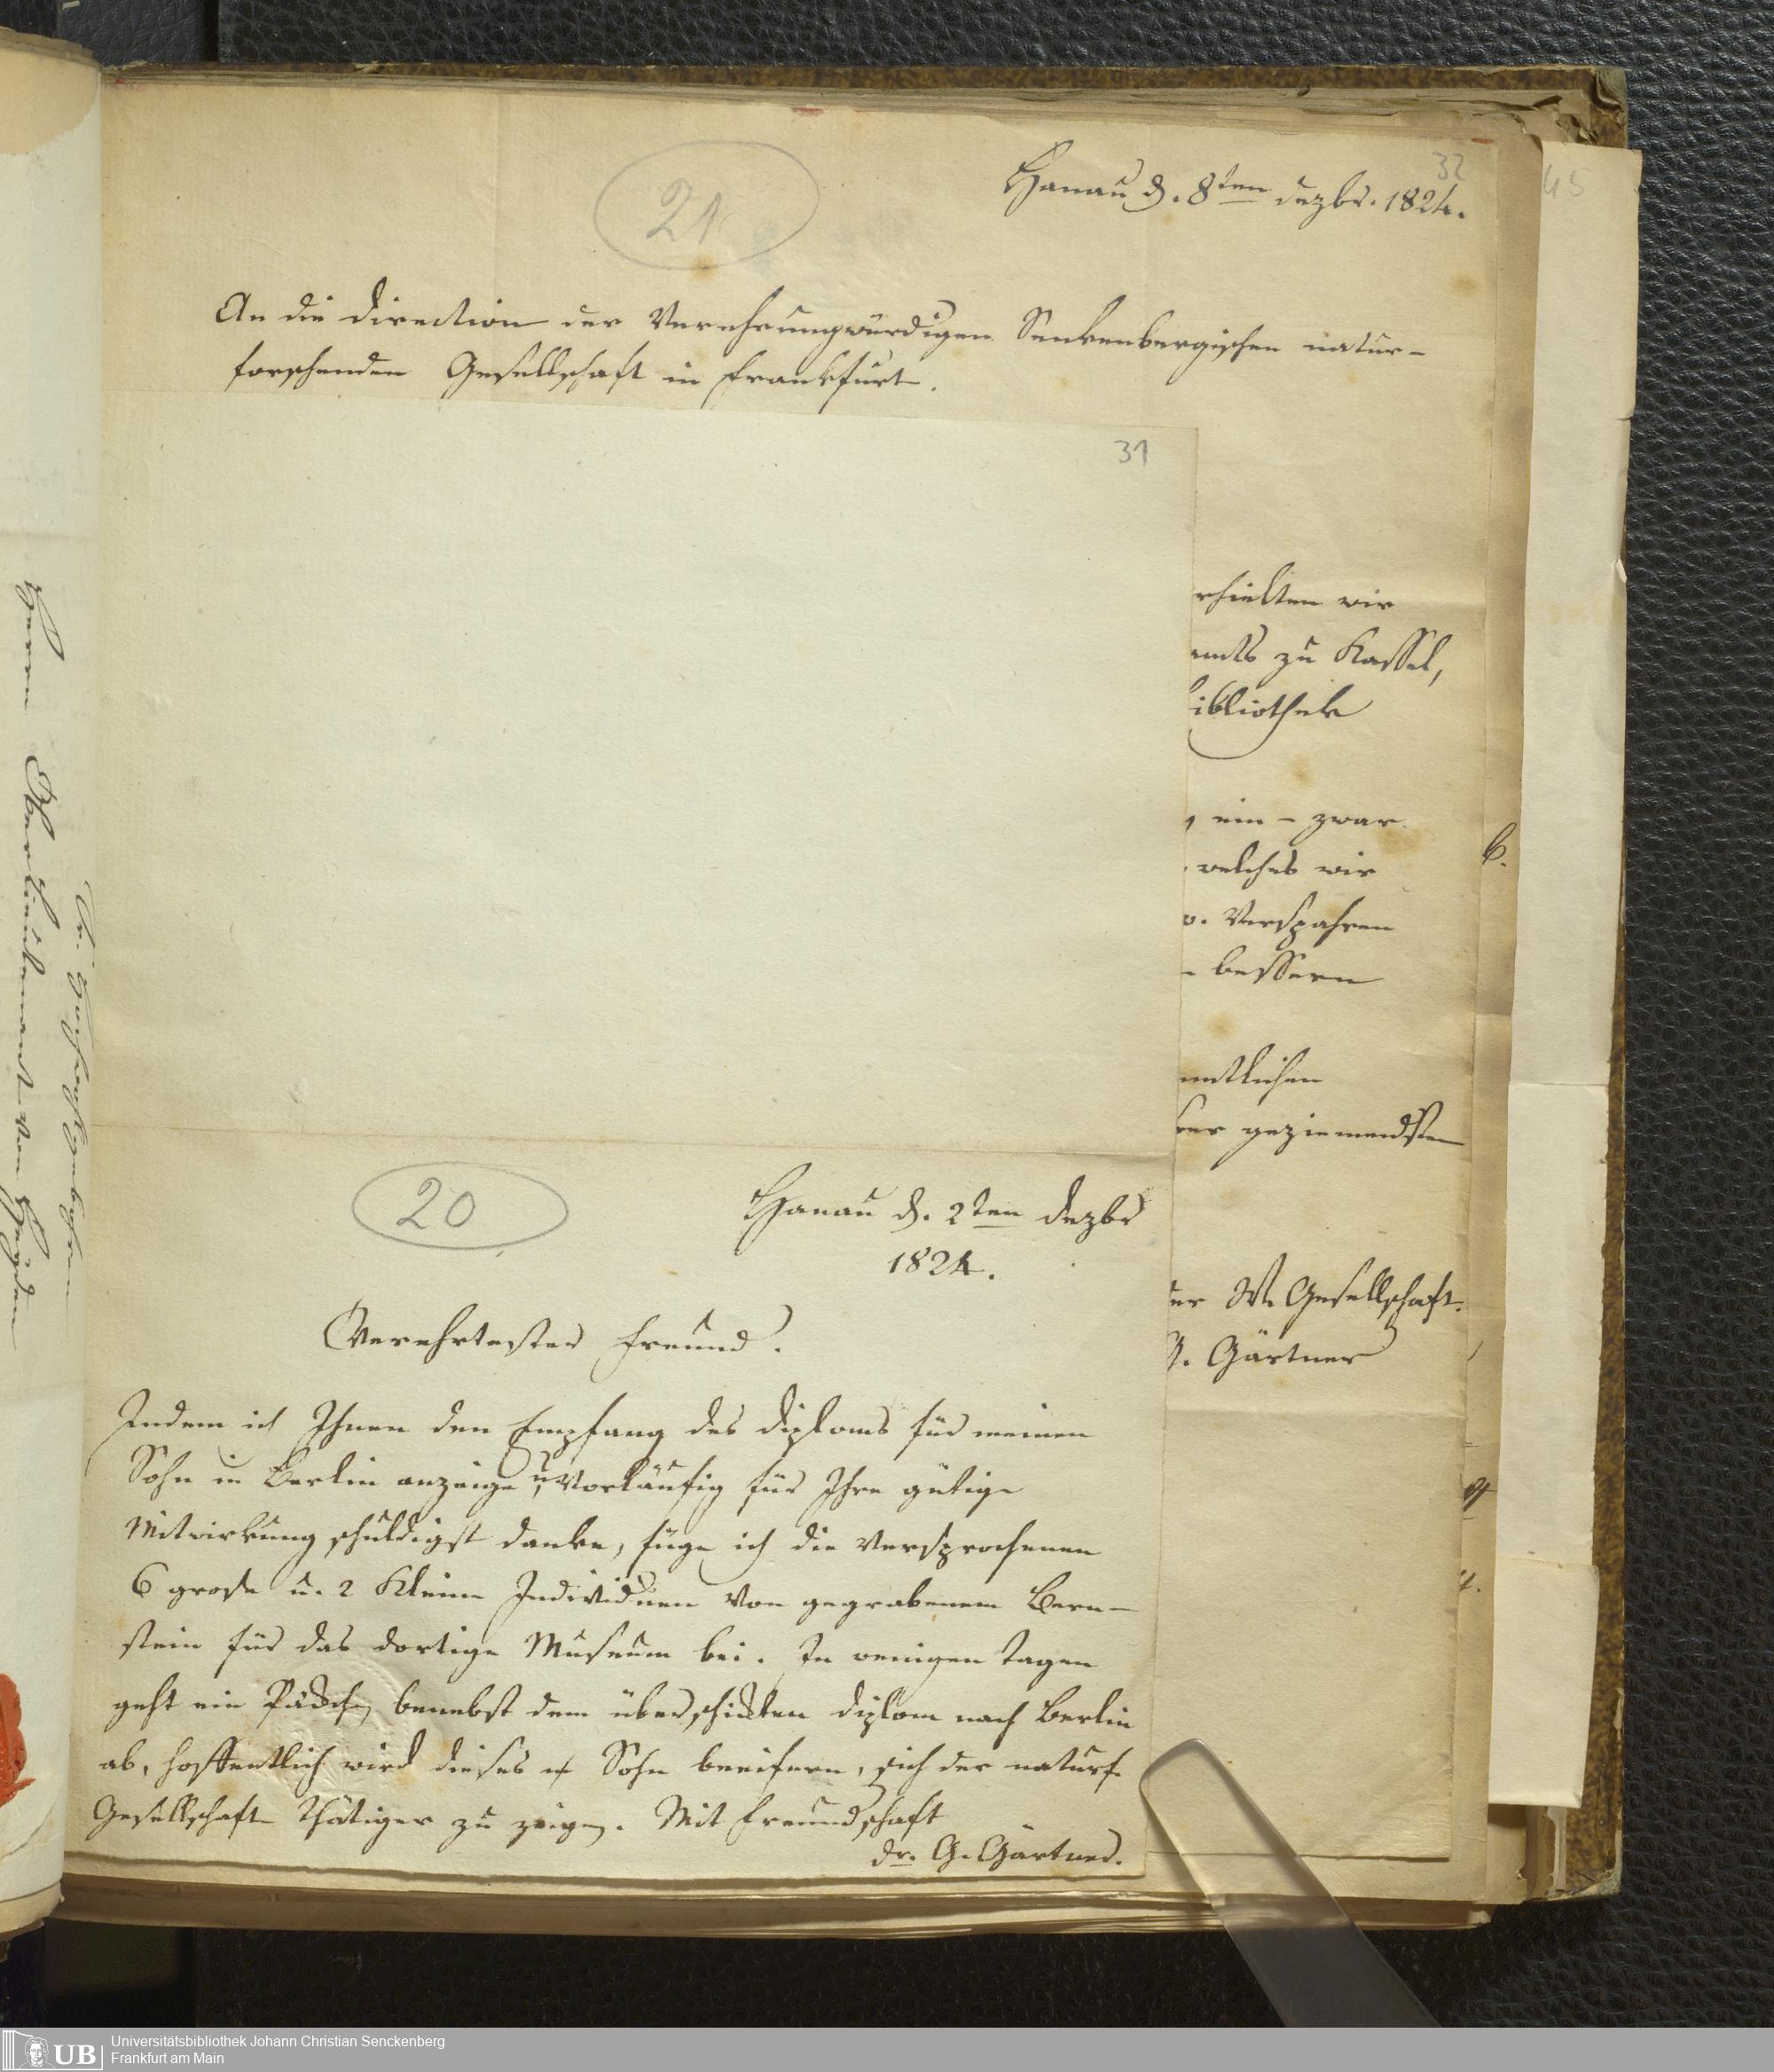 32
45
21
Hanau d. 8ten Dezbr. 1824.
An die Direction der Verehrungwürdigen Senkenbergischen natur-
forschenden Gesellschaft in Frankfurt.
31
rhielten wir
amts zu Kassel,
ibliothek
ein - zwar
welches wir
v. Versparen
bessern
6.
mtlichen
er geziemendsten
er W. Gesellschaft.
G. Gärtner
20
Hanau d. 2ten Dezbr
1824.
Verehrtester Freund.
Indem ich Ihnen den Empfang des Diploms für meinen
Sohn in Berlin anzeige u. Vorläufig für Ihre gütige
Mitwirkung schuldigst danke, füge ich die Versprochenen
6 grose u. 2 Kleine Individuen Von gegrabenem Bern-
stein für das dortige Museum bei. In wenigen Tagen
geht ein Päckch. benebst dem überschickten Diplom nach Berlin
ab, hoffentlich wird dieses Sohn beeifern, sich der naturf.
Gesellschaft thätiger zu zeigen. Mit Freundschaft
Dr. G. Gärtner.
Herrn Oberlieutenant von Heyden
Universitätsbibliothek Johann Christian Senckenberg
Frankfurt am Main
UB